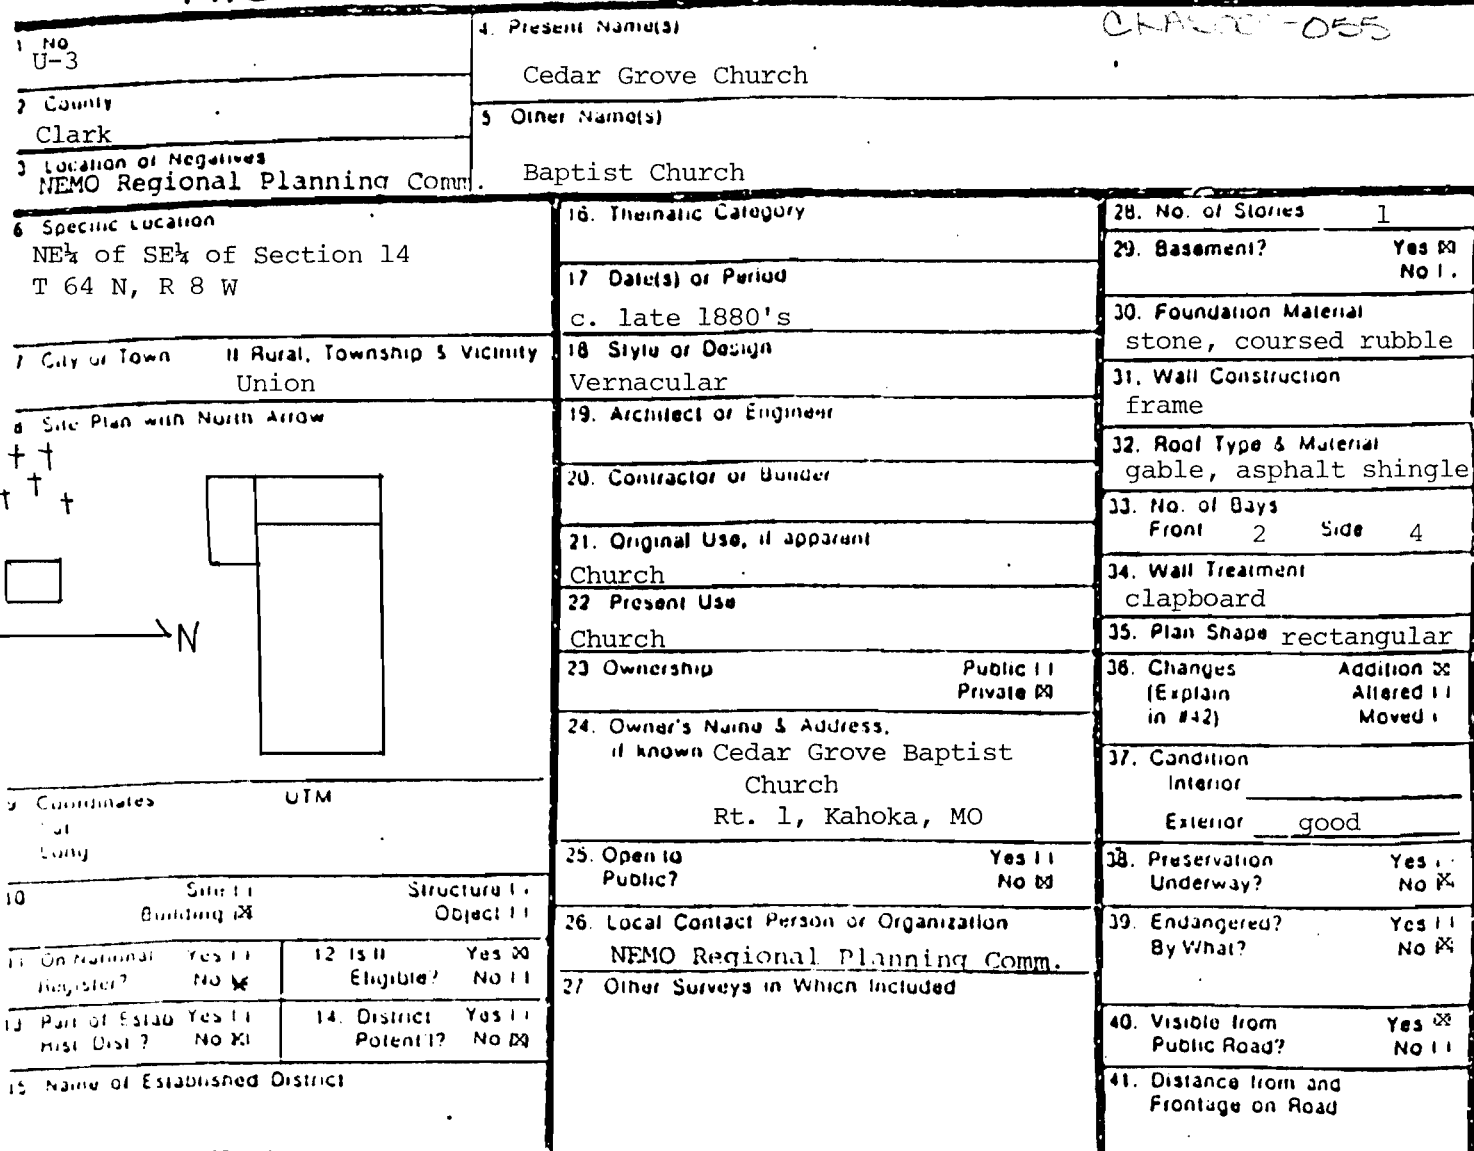 1 No
U-3
2 County
Clark
3 Location of Negatives
NEMO Regional Planning Comm.
4. Present Name(s)
-055
Cedar Grove Church
5 Other Name(s)
Baptist Church
6 Specific Location
NE¼ of SE¼ of Section 14
T 64 N, R 8 W
7 City or Town If Rural, Township & Vicinity
Union
8 Site Plan with North Arrow
N
9 Coordinates UTM
Lat
Long
10 Site Structure
Building ☒ Object
11 On National Register? Yes No ☒
12 Is It Eligible? Yes ☒ No
13 Part of Estab Hist Dist? Yes No ☒
14. District Potent'l? Yes No ☒
15 Name of Established District
16. Thematic Category
17 Date(s) or Period
c. late 1880's
18 Style or Design
Vernacular
19. Architect or Engineer
20. Contractor or Builder
21. Original Use, if apparent
Church
22 Present Use
Church
23 Ownership Public
Private ☒
24. Owner's Name & Address,
if known Cedar Grove Baptist
Church
Rt. 1, Kahoka, MO
25. Open to Yes
Public? No ☒
26. Local Contact Person or Organization
NEMO Regional Planning Comm.
27 Other Surveys in Which Included
28. No. of Stories 1
29. Basement? Yes ☒
No
30. Foundation Material
stone, coursed rubble
31. Wall Construction
frame
32. Roof Type & Material
gable, asphalt shingle
33. No. of Bays
Front 2 Side 4
34. Wall Treatment
clapboard
35. Plan Shape rectangular
36. Changes Addition ☒
(Explain Altered
in #42) Moved
37. Condition
Interior
Exterior good
38. Preservation Yes
Underway? No ☒
39. Endangered? Yes
By What? No ☒
40. Visible from Yes ☒
Public Road? No
41. Distance from and
Frontage on Road